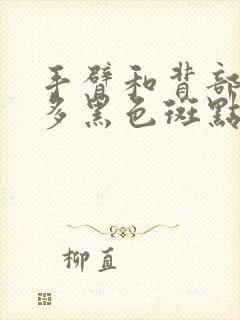 手臂和背部
多黑色斑點
柳直